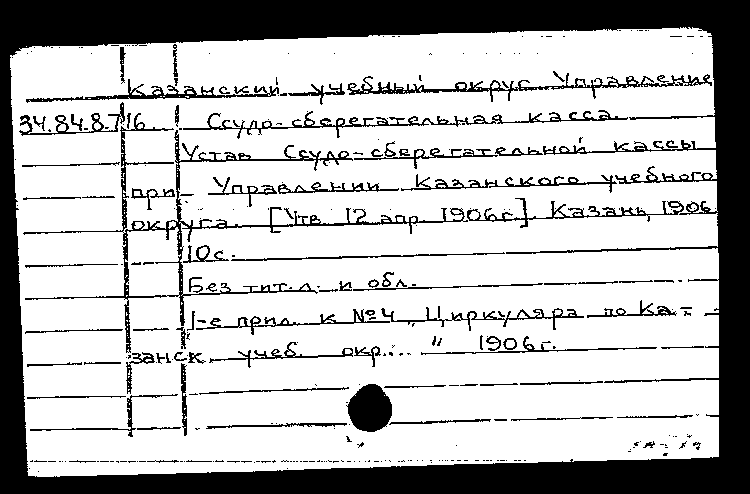 Казанский учебный округ Управление
34.84.8.716 Ссудо-сберегательная касса.
Устав Ссудо-сберегательной кассы
при Управлении Казанского учебного
округа. [Утв. 12 апр. 1906г.]. Казань, 1906
10с.
Без тит.л. и обл.
1-е прил. к №4 „Циркуляра по Ка-
занск. учеб. окр..." 1906г.